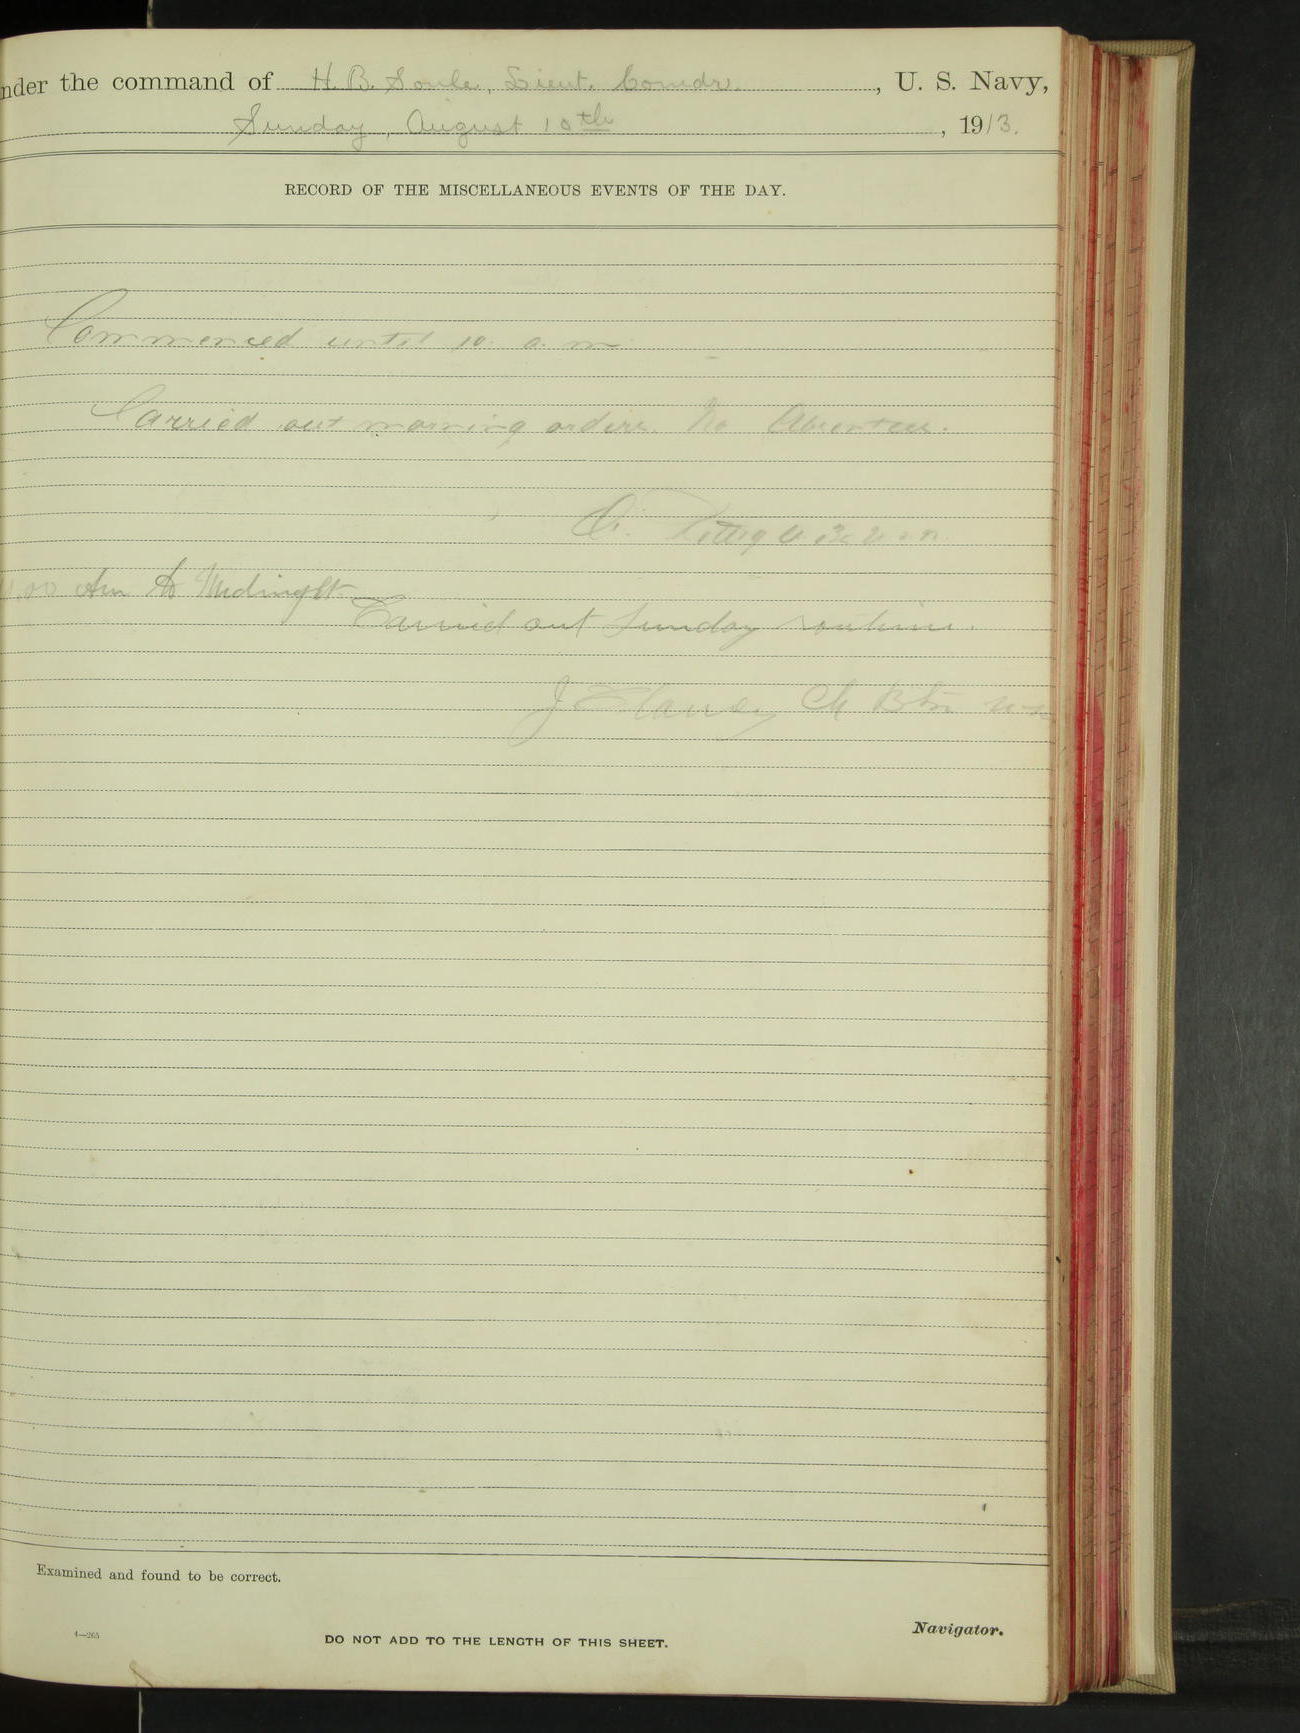 nder the command of H. B. Soule, Lieut. Comdr. , U. S. Navy,
Sunday, August 10th , 1913.
RECORD OF THE MISCELLANEOUS EVENTS OF THE DAY.
Commenced until 10 a. m
Carried out morning orders. No Absentees.
C.
Am to Midnight
Carried out Sunday routine.
J Ch Btn USN
Examined and found to be correct.
4—265
DO NOT ADD TO THE LENGTH OF THIS SHEET.
Navigator.